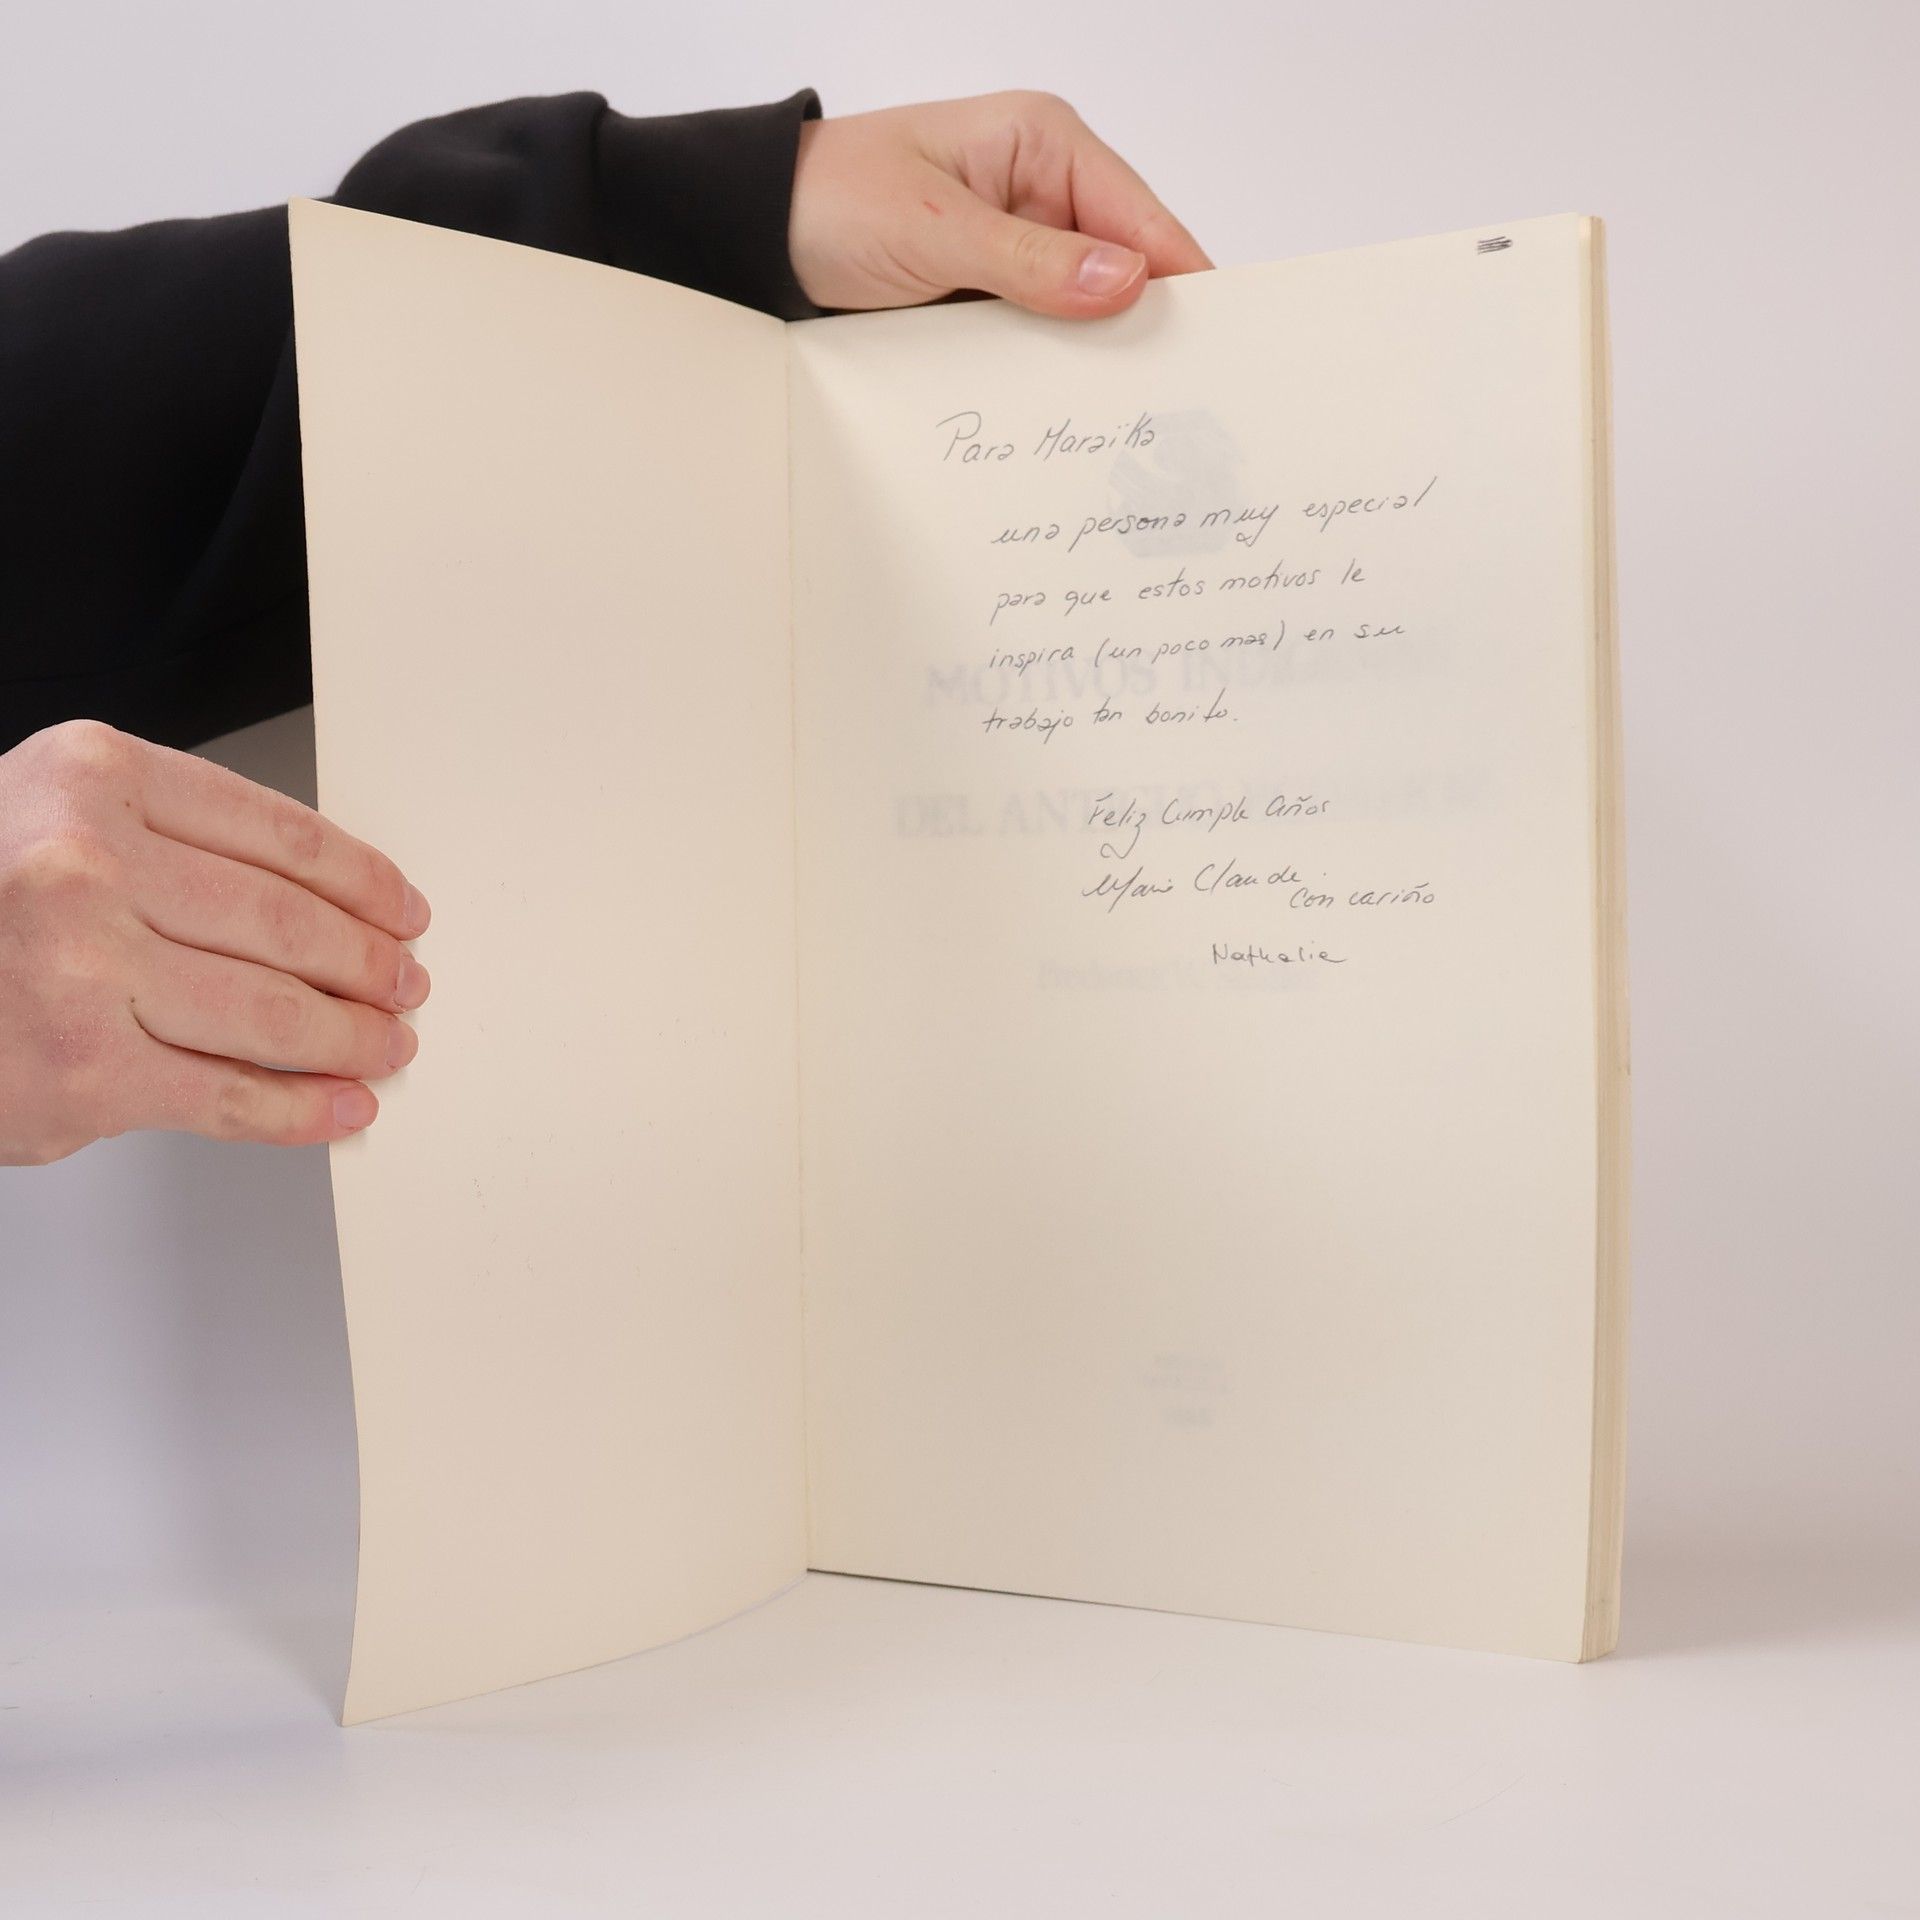 Para Maraïka
una persona muy especial
para que estos motivos le
inspira (un poco mas) en su
trabajo tan bonito.
Feliz Cumple Años
Marie Claude
Con cariño
Nathalie
MOTIVOS
DEL